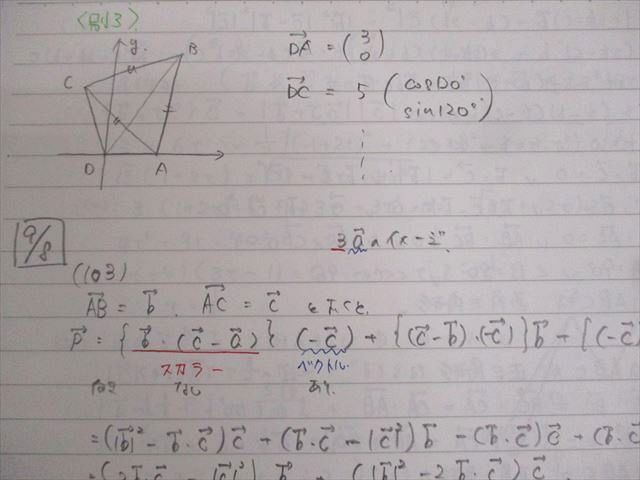 〈別解3〉
y
B
C
D
A
DA→ = (3 0)
DC→ = 5 (cos120° sin120°)
9/8
3a→のイメージ
(103)
AB→ = b→. AC→ = c→ とおくと.
p→ = {b→・(c→-a→)}(-c→) + {(c→-b→)・(-c→)}b→ + {(-c→)
スカラー
ベクトル.
なし
あり.
= (|b→|² - b→・c→)c→ + (b→・c→ - |c→|²)b→ - (b→・c→)c→ + (b→・c→
= (2b→・c→ - |c→|²)b→ + (|b→|² - 2b→・c→)c→